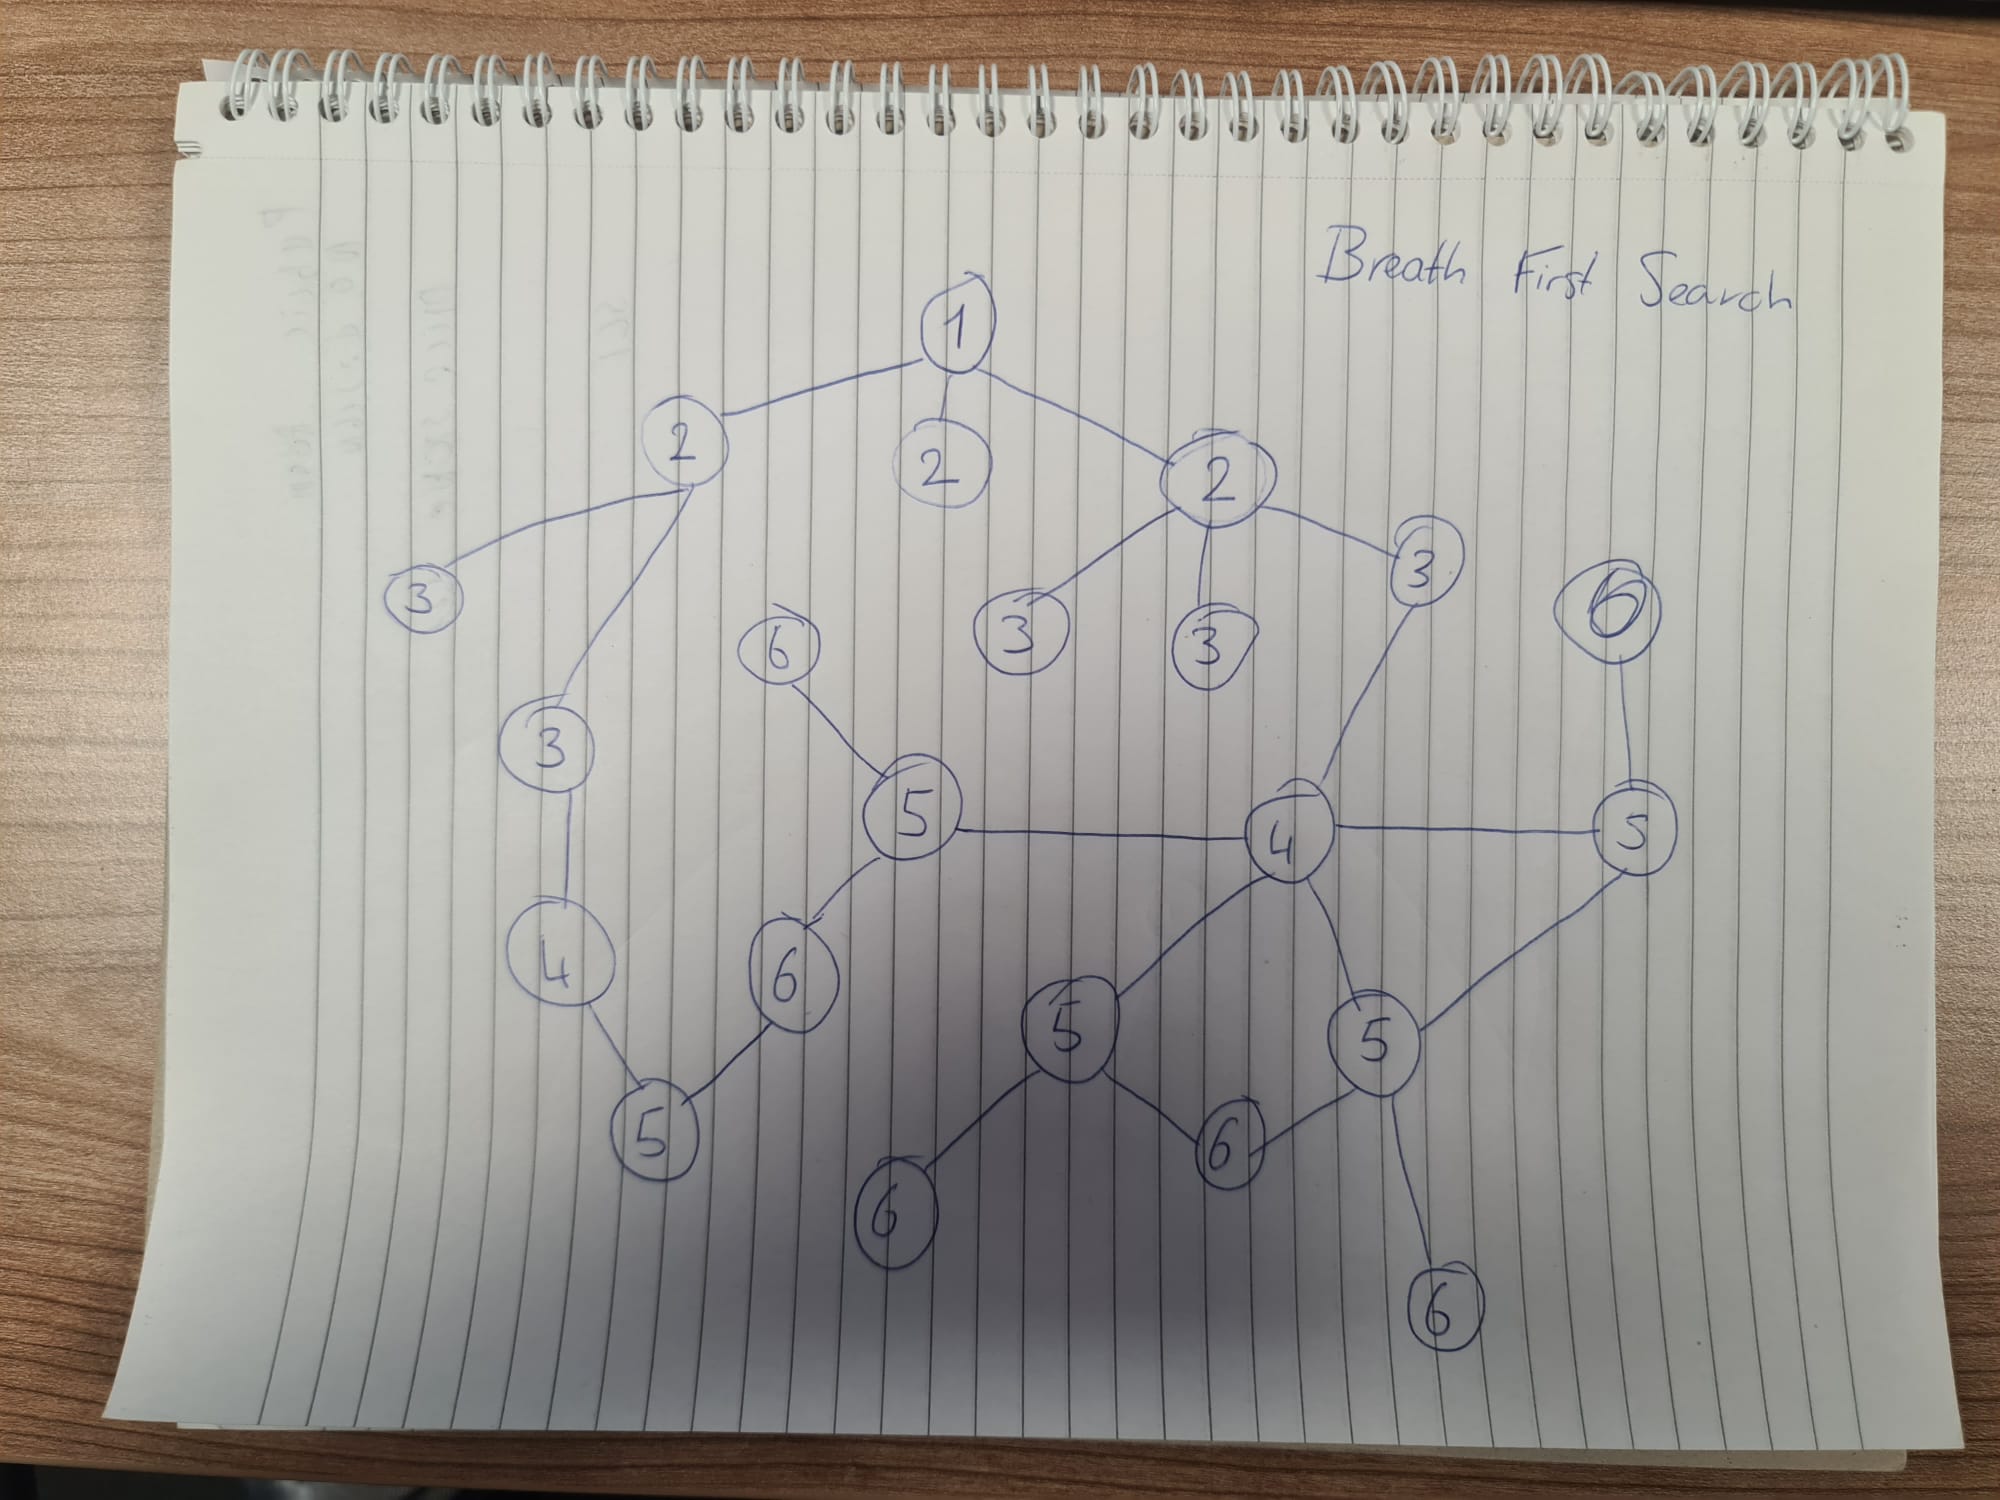 Breath First Search
1
2
2
2
3
3
6
3
3
3
6
5
4
5
4
6
5
5
5
6
6
6